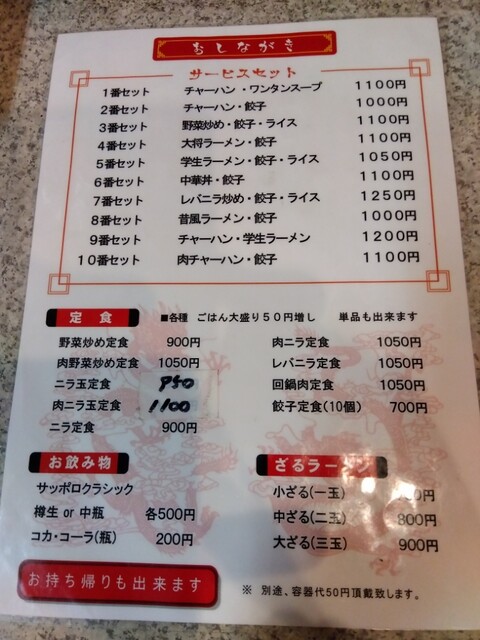 おしながき
サービスセット
1番セット チャーハン・ワンタンスープ 1100円
2番セット チャーハン・餃子 1000円
3番セット 野菜炒め・餃子・ライス 1100円
4番セット 大将ラーメン・餃子 1100円
5番セット 学生ラーメン・餃子・ライス 1050円
6番セット 中華丼・餃子 1100円
7番セット レバニラ炒め・餃子・ライス 1250円
8番セット 昔風ラーメン・餃子 1000円
9番セット チャーハン・学生ラーメン 1200円
10番セット 肉チャーハン・餃子 1100円
定食 ■各種 ごはん大盛り50円増し 単品も出来ます
野菜炒め定食 900円
肉野菜炒め定食 1050円
ニラ玉定食 950
肉ニラ玉定食 1100
ニラ定食 900円
肉ニラ定食 1050円
レバニラ定食 1050円
回鍋肉定食 1050円
餃子定食(10個) 700円
お飲み物
サッポロクラシック
樽生 or 中瓶 各500円
コカ・コーラ(瓶) 200円
ざるラーメン
小ざる(一玉)
中ざる(二玉) 800円
大ざる(三玉) 900円
お持ち帰りも出来ます
※ 別途、容器代50円頂戴致します。